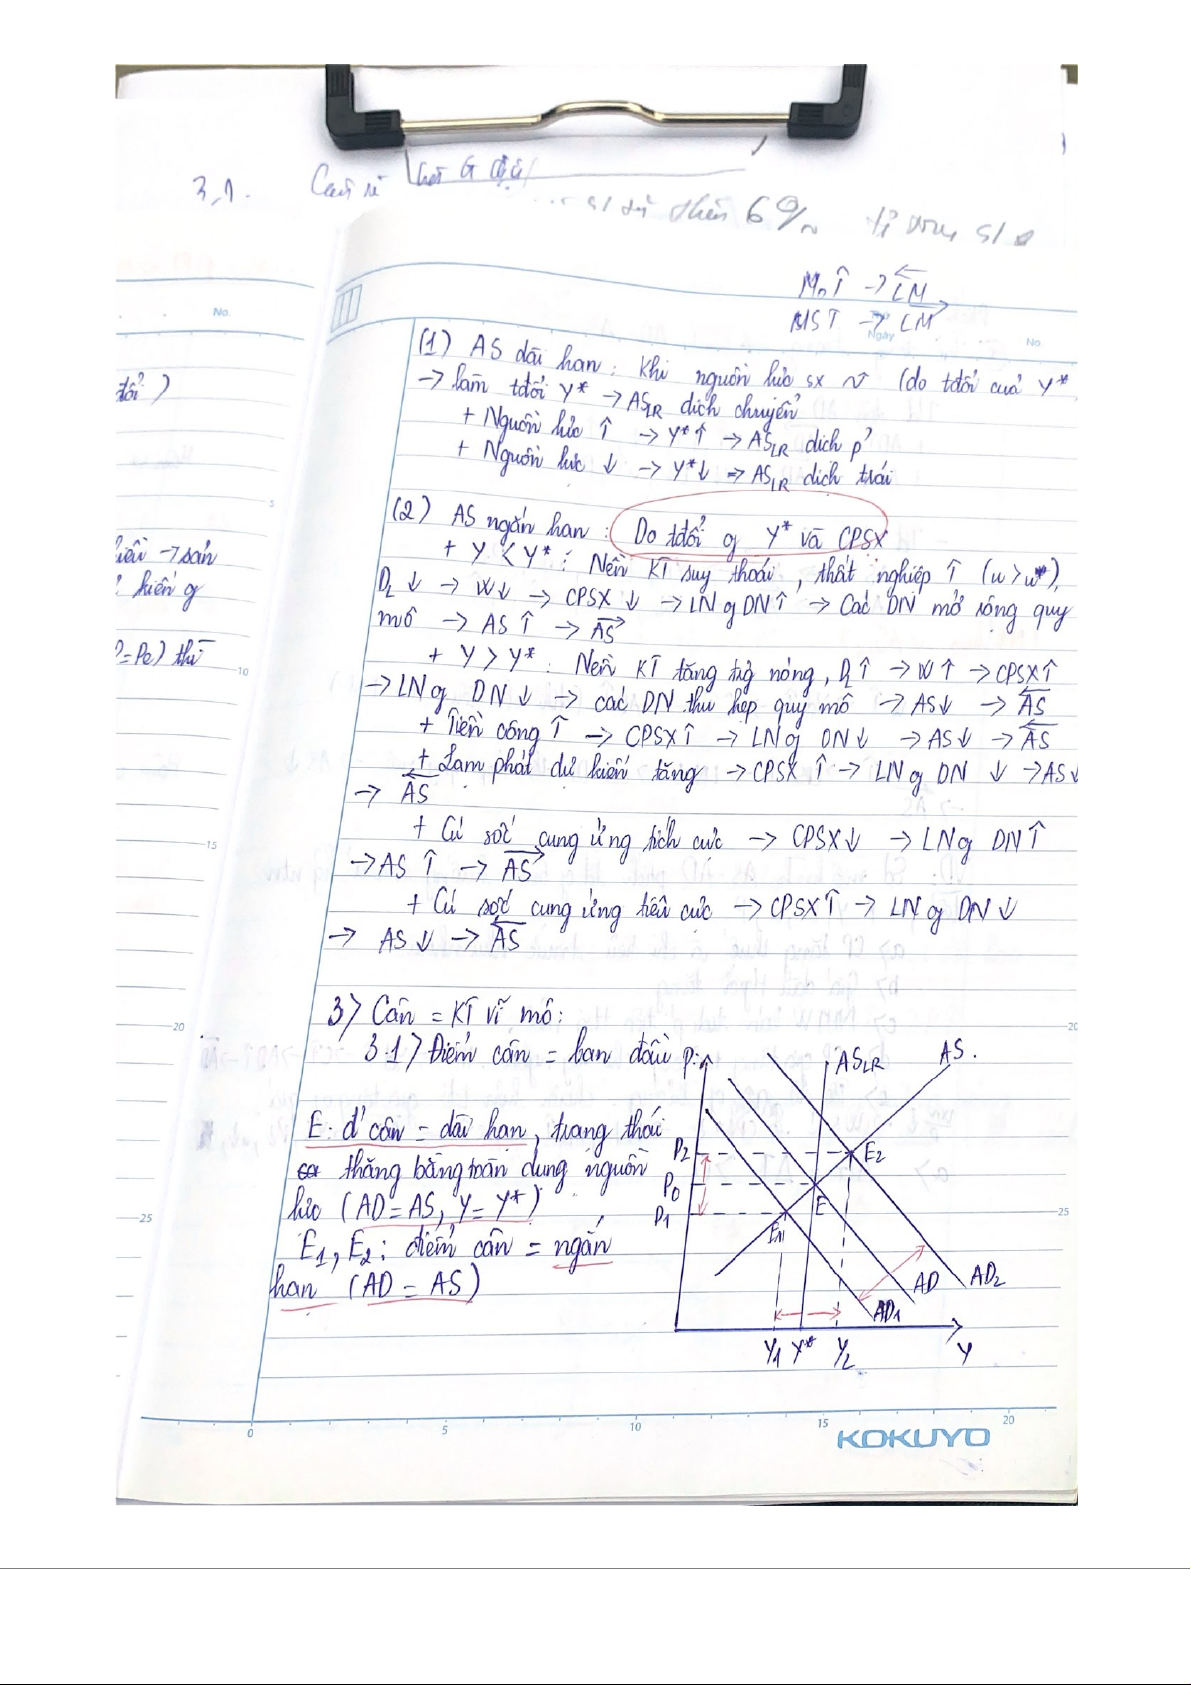 3.1.
6%
M₀↑ → LM
MS↑ → LM
No.
Ngày
No.
(1) AS dài hạn: Khi nguồn lực sx ~ (do tđổi của Y*
→ làm tđổi Y* → AS_LR dịch chuyển
+ Nguồn lực ↑ → Y*↑ → AS_LR dịch p'
+ Nguồn lực ↓ → Y*↓ → AS_LR dịch trái
đổi)
(2) AS ngắn hạn: Do tđổi of Y* và CPSX
+ Y < Y*: Nền KT suy thoái, thất nghiệp ↑ (u>u*),
D_L ↓ → W↓ → CPSX ↓ → LN of DN↑ → Các DN mở rộng quy
mô → AS ↑ → AS
→ sản
kiến of
P=Pe) thì
+ Y > Y*: Nền KT tăng trg nóng, D_L↑ → W↑ → CPSX↑
→ LN of DN ↓ → các DN thu hẹp quy mô → AS↓ → AS
+ Tiền công ↑ → CPSX↑ → LN of DN↓ → AS↓ → AS
+ Lạm phát dự kiến tăng → CPSX ↑ → LN of DN ↓ → AS↓
→ AS
+ Cú sốc cung ứng tích cực → CPSX↓ → LN of DN↑
→ AS ↑ → AS
+ Cú sốc cung ứng tiêu cực → CPSX↑ → LN of DN↓
→ AS↓ → AS
3) Cân = KT vĩ mô:
3.1) Điểm cân = ban đầu
E: đ' cân = dài hạn, trạng thái
thăng bằng toàn dụng nguồn
lực (AD=AS, Y=Y*)
E₁, E₂: điểm cân = ngắn
hạn (AD = AS)
P
AS_LR
AS.
P₂
P₀
P₁
E₂
E
E₁
AD₂
AD
AD₁
Y₁ Y* Y₂ Y
5
10
15
20
25
20
25
0 5 10 15 20
KOKUYO